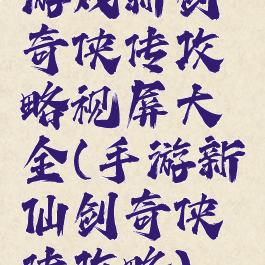 游戏新剑
奇侠传攻
略视屏大
全(手游新
仙剑奇侠
传攻略)